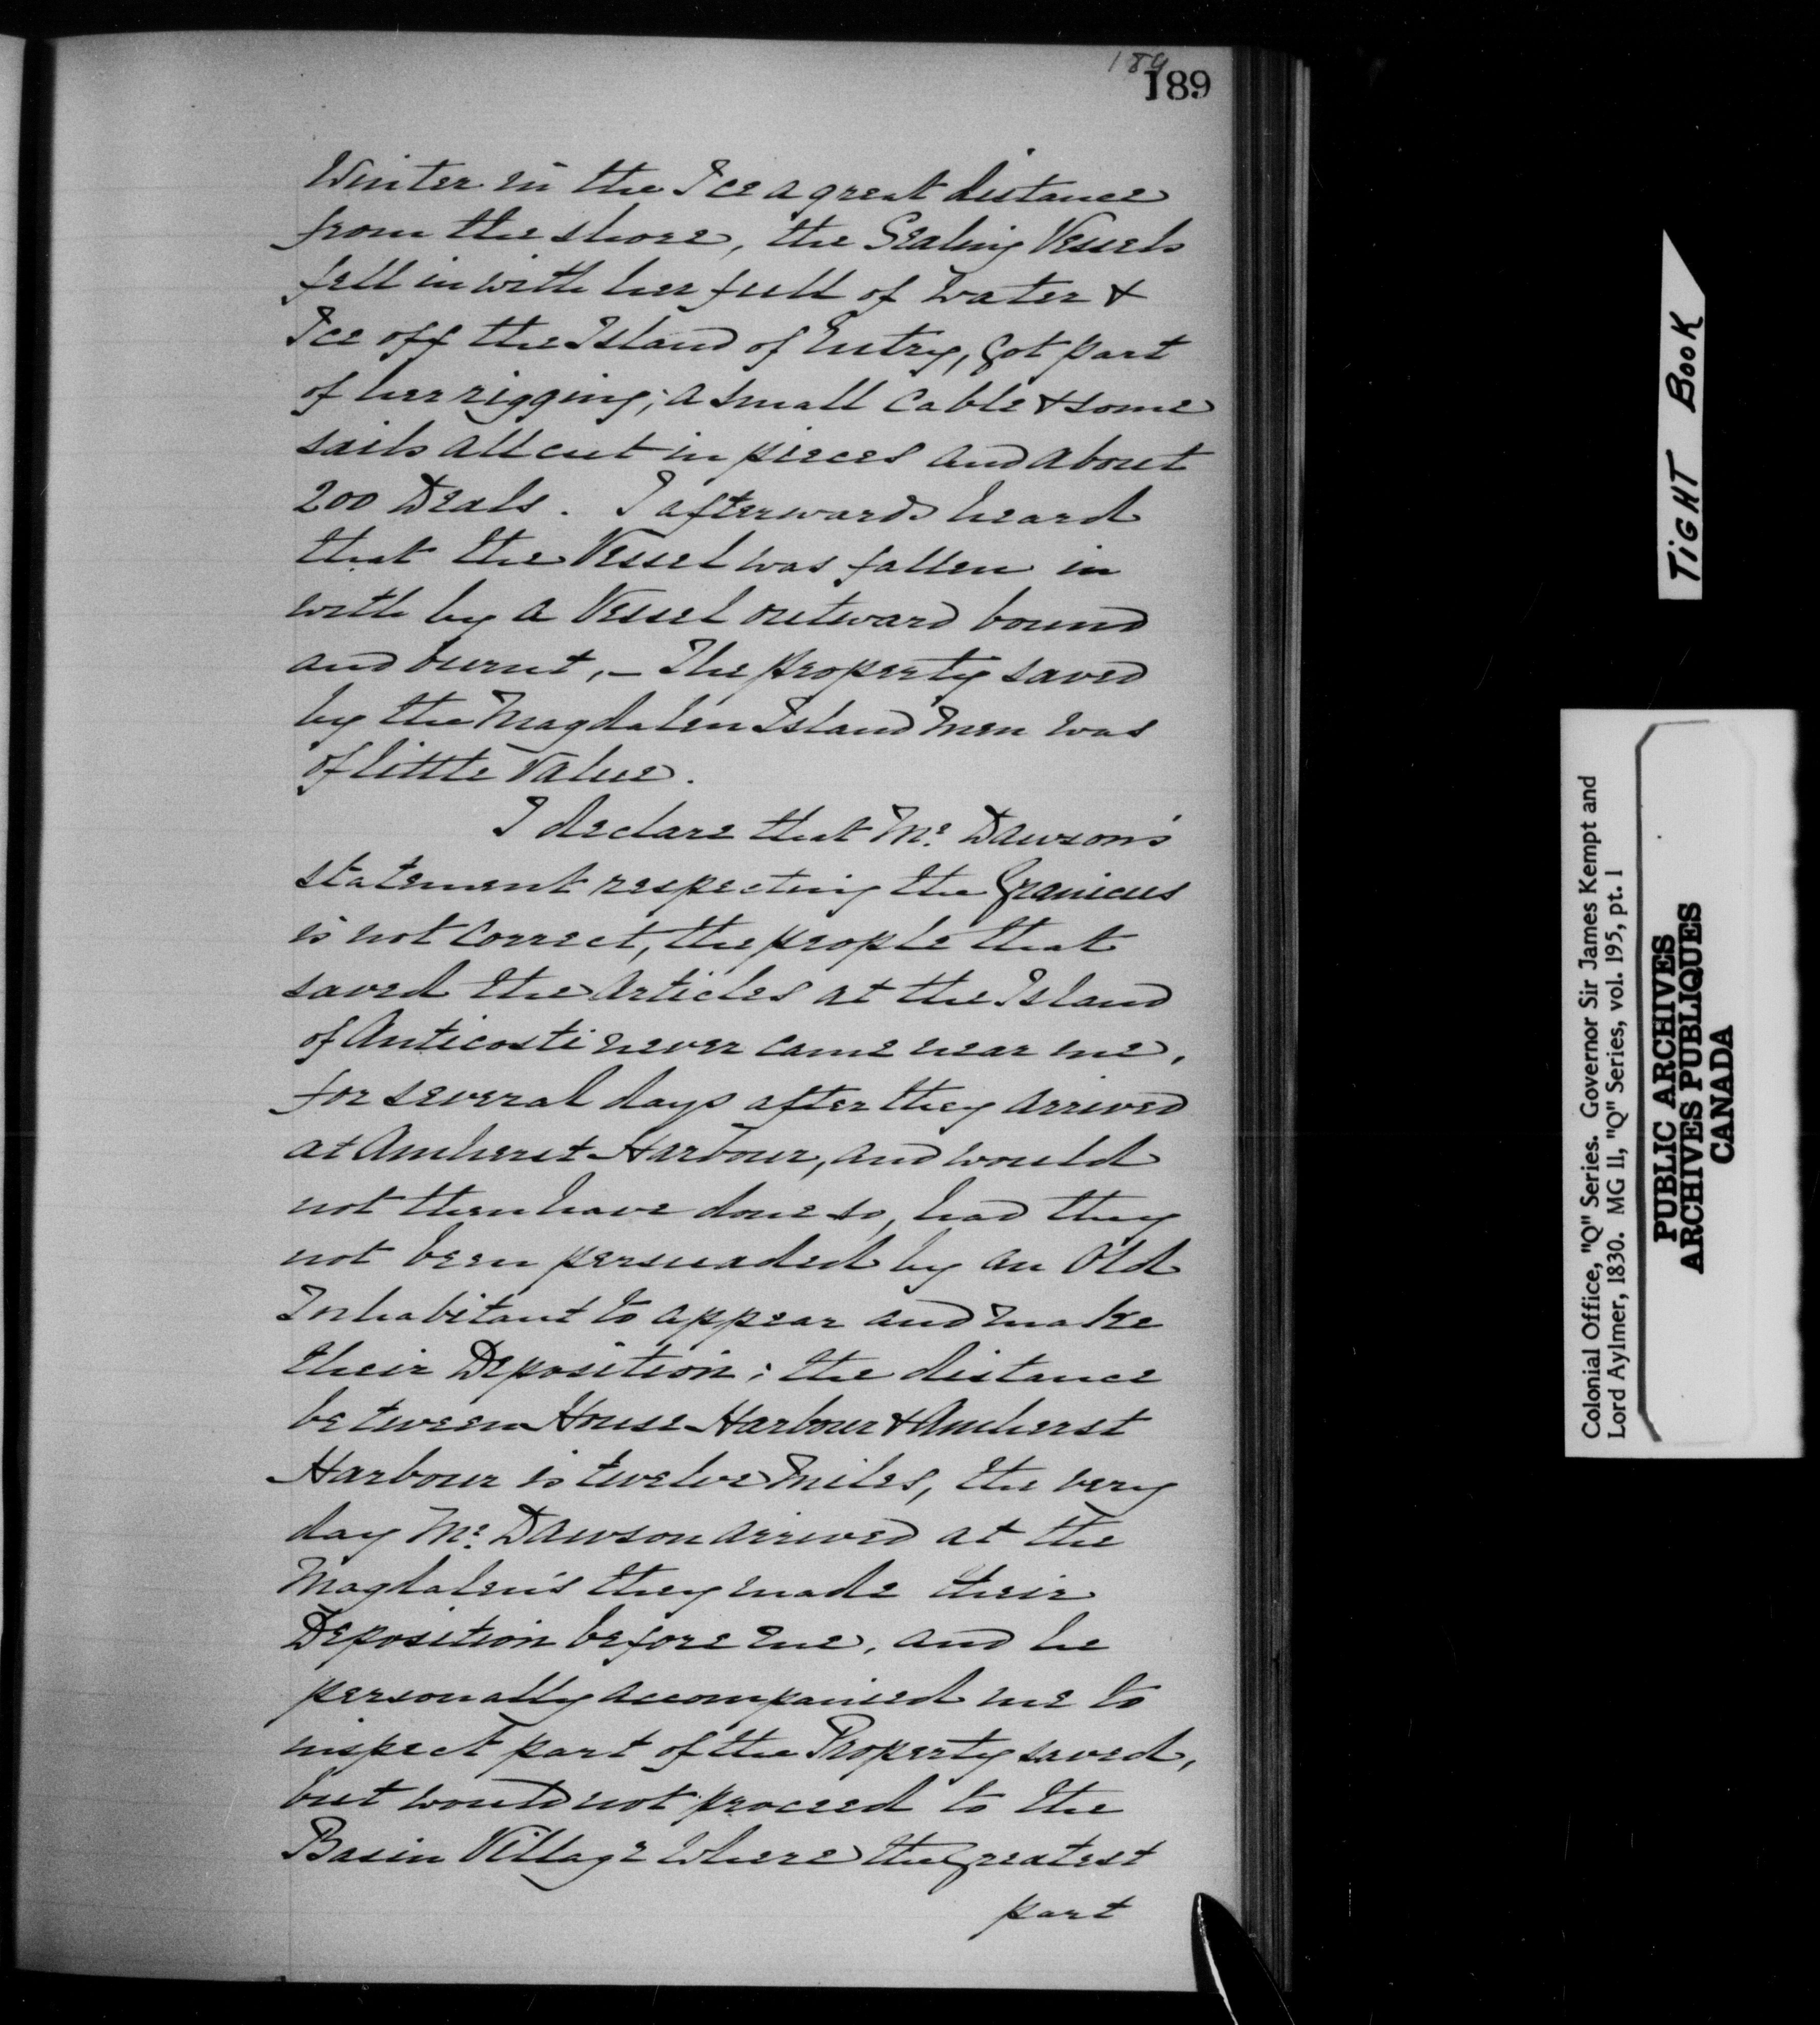 189
189
Winter in the Ice a great distance
from the shore, the Sealing Vessels
fell in with her full of water &
Ice off the Island of Entry, Got part
of her rigging; a small Cable & some
sails all cut in pieces and about
200 Deals. I afterwards heard
that the Vessel was fallen in
with by a Vessel outward bound
and burnt, – The property saved
by the Magdalen Island Men was
of little Value.
I declare that Mr. Dawson's
statement respecting the Granicus
is not Correct, the people that
saved the Articles at the Island
of Anticosti never came near me,
for several days after they arrived
at Amherst Harbour, and would
not then have done so, had they
not been persuaded by an Old
Inhabitant to appear and make
their Deposition; the distance
between House Harbour & Amherst
Harbour is twelve Miles, the very
day Mr. Dawson arrived at the
Magdalen's they made their
Deposition before me, and he
personally accompanied me to
inspect part of the Property saved,
but would not proceed to the
Basin Village where the Greatest
part
TIGHT BOOK
Colonial Office, "Q" Series. Governor Sir James Kempt and
Lord Aylmer, 1830. MG 11, "Q" Series, vol. 195, pt. 1
PUBLIC ARCHIVES
ARCHIVES PUBLIQUES
CANADA